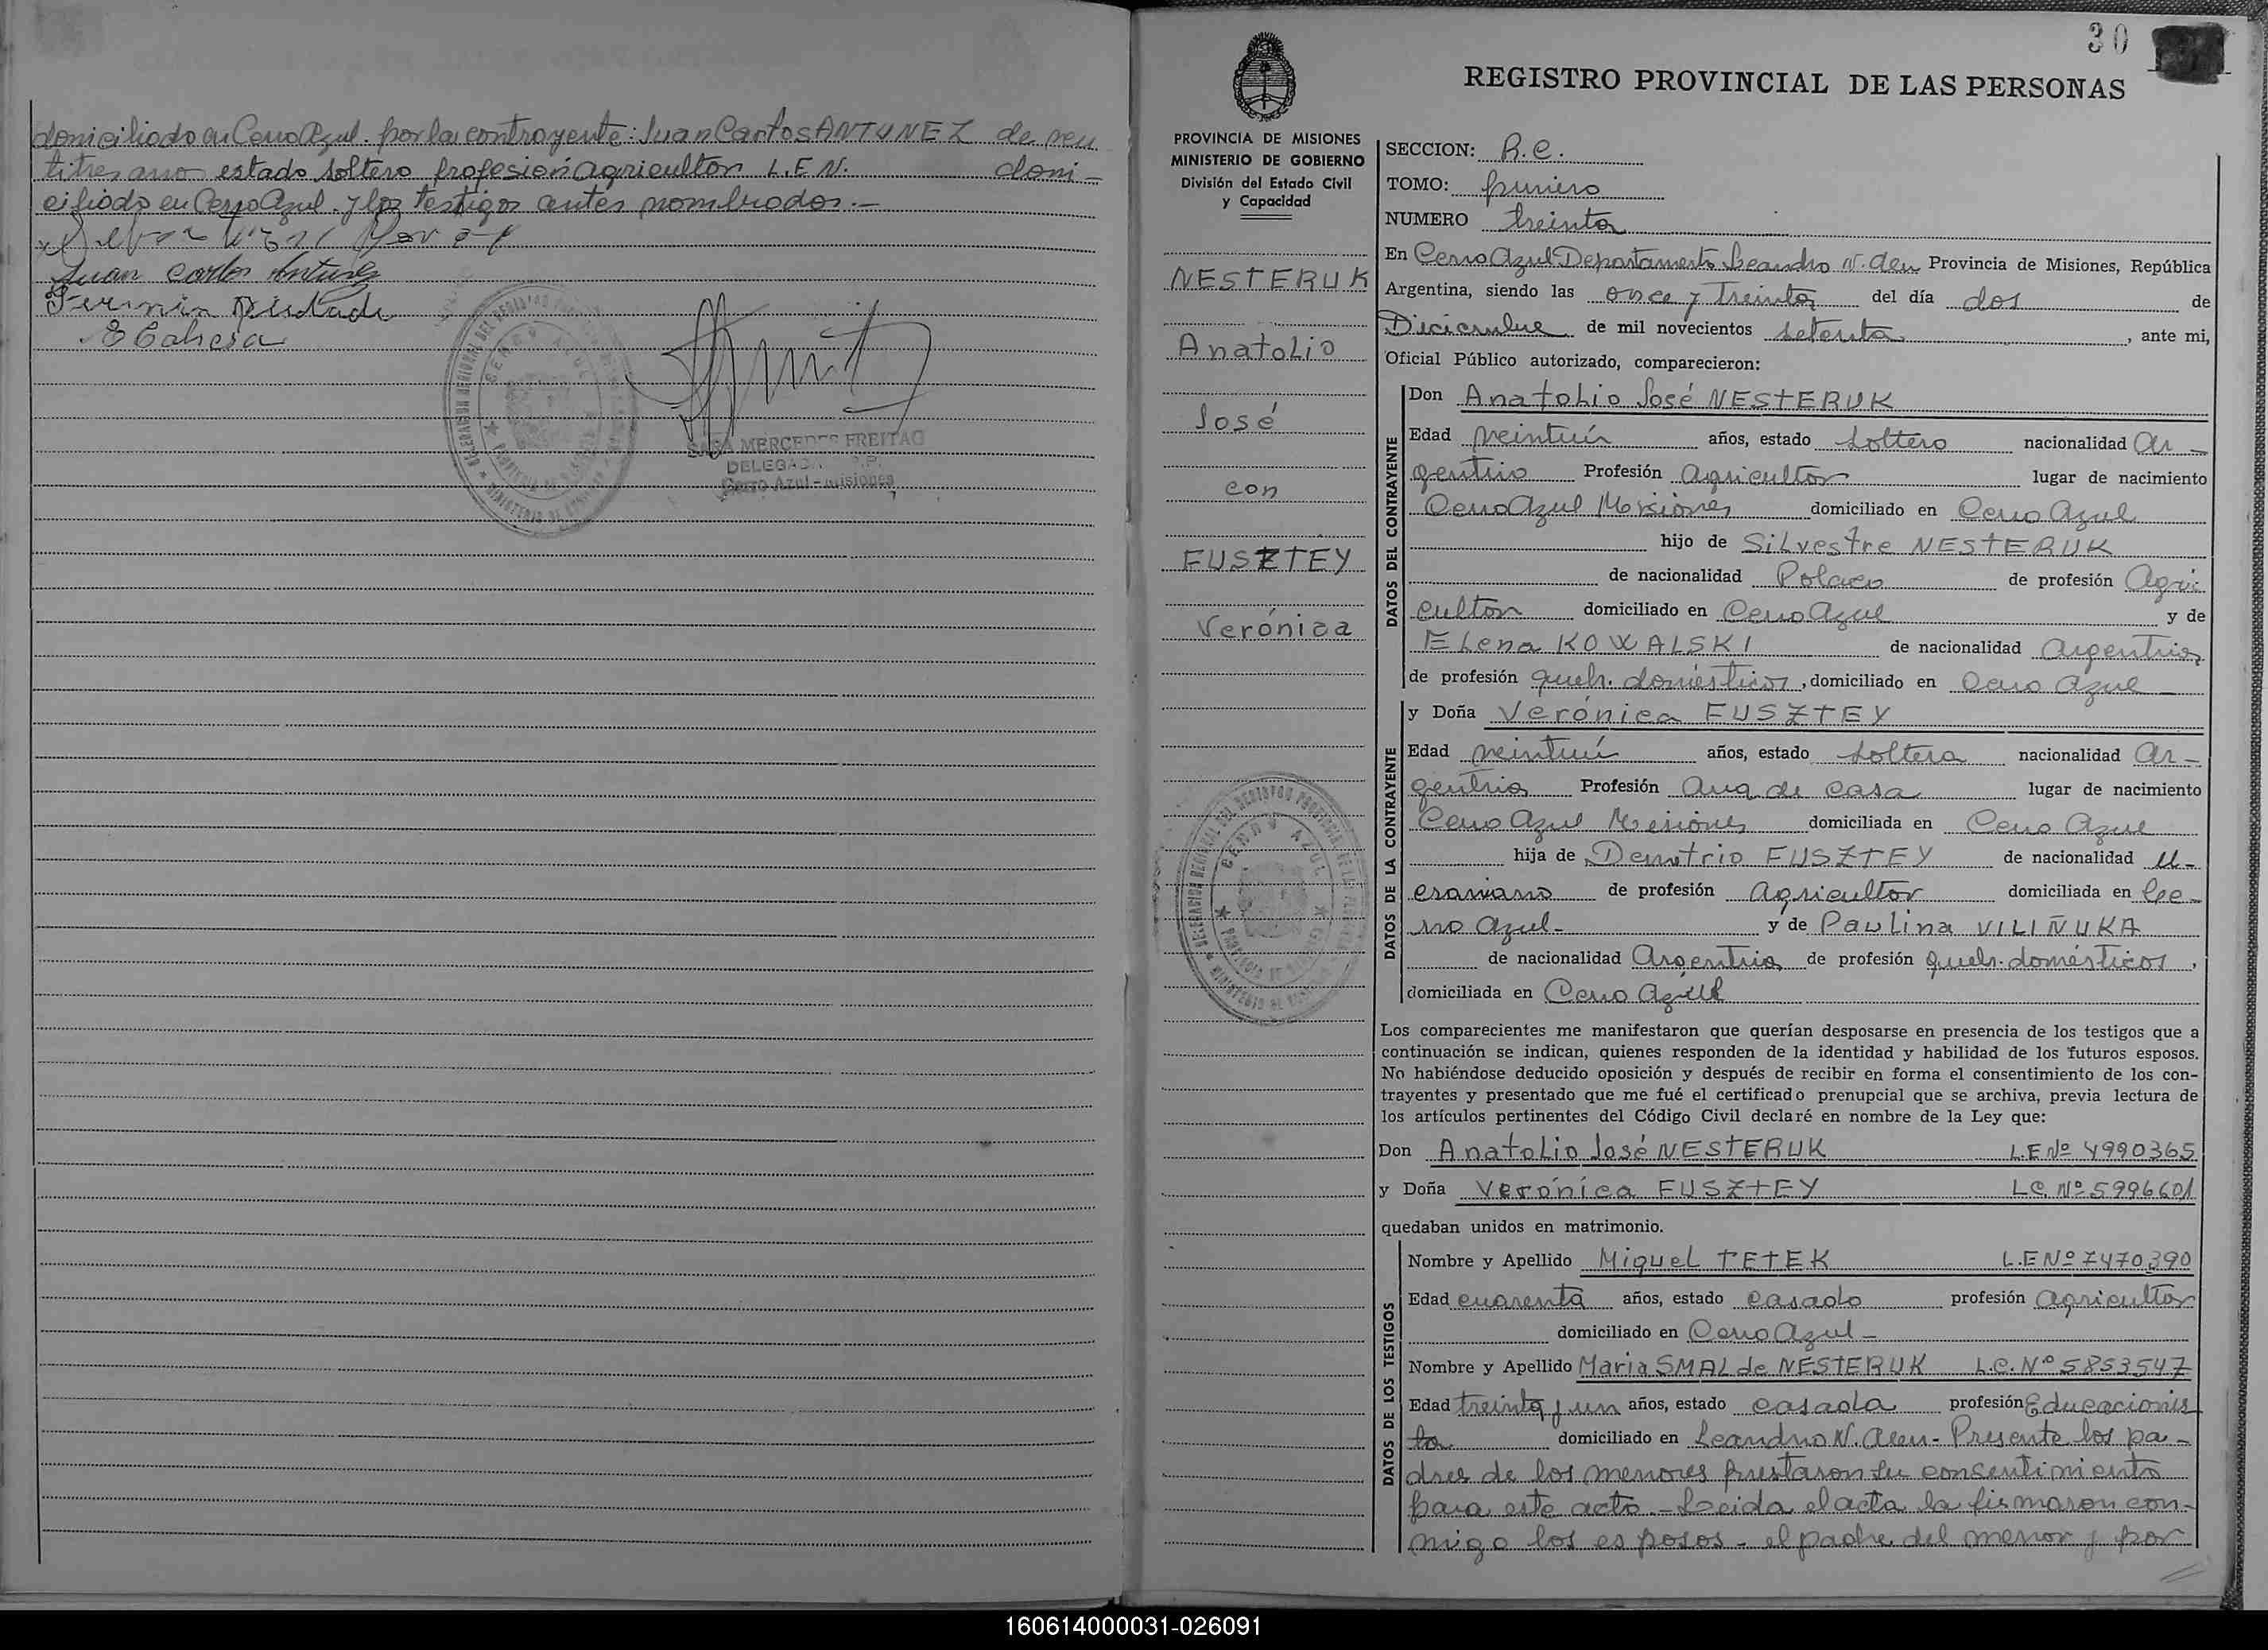 domiciliado en Cerro Azul. por la contrayente: Juan Carlos ANTUNEZ de vein
titres años estado soltero profesión agricultor L.E.N. domi-
ciliado en Cerro Azul. y los testigos antes nombrados.-
Juan Carlos Antunez
SARA MERCEDES FREITAG
DELEGADA
Cerro Azul - Misiones
30
REGISTRO PROVINCIAL DE LAS PERSONAS
PROVINCIA DE MISIONES
MINISTERIO DE GOBIERNO
División del Estado Civil
y Capacidad
NESTERUK
Anatolio
José
con
FUSZTEY
Verónica
SECCION: R.C.
TOMO: primero
NUMERO treinta
En Cerro Azul Departamento Leandro N. Alem Provincia de Misiones, República
Argentina, siendo las once y treinta del día dos de
Diciembre de mil novecientos setenta, ante mi,
Oficial Público autorizado, comparecieron:
DATOS DEL CONTRAYENTE
Don Anatolio José NESTERUK
Edad veintiún años, estado soltero nacionalidad Ar-
gentino Profesión Agricultor lugar de nacimiento
Cerro Azul Misiones domiciliado en Cerro Azul
hijo de Silvestre NESTERUK
de nacionalidad Polaco de profesión Agri
cultor domiciliado en Cerro Azul y de
Elena KOWALSKI de nacionalidad Argentina
de profesión queh. domésticos, domiciliado en Cerro Azul
DATOS DE LA CONTRAYENTE
y Doña Verónica FUSZTEY
Edad veintiún años, estado soltera nacionalidad Ar-
gentina Profesión Ama de casa lugar de nacimiento
Cerro Azul Misiones domiciliada en Cerro Azul
hija de Demetrio FUSZTEY de nacionalidad U-
craniano de profesión agricultor domiciliada en Ce-
rro Azul- y de Paulina VILIÑUKA
de nacionalidad Argentina de profesión queh. domésticos,
domiciliada en Cerro Azul
Los comparecientes me manifestaron que querían desposarse en presencia de los testigos que a
continuación se indican, quienes responden de la identidad y habilidad de los futuros esposos.
No habiéndose deducido oposición y después de recibir en forma el consentimiento de los con-
trayentes y presentado que me fué el certificado prenupcial que se archiva, previa lectura de
los artículos pertinentes del Código Civil declaré en nombre de la Ley que:
Don Anatolio José NESTERUK L.E Nº 4990365
y Doña Verónica FUSZTEY L.C. Nº 5996601
quedaban unidos en matrimonio.
DATOS DE LOS TESTIGOS
Nombre y Apellido Miguel TETEK L.E Nº 7470390
Edad cuarenta años, estado casado profesión agricultor
domiciliado en Cerro Azul-
Nombre y Apellido Maria SMAL de NESTERUK L.C. Nº 5853547
Edad treinta y un años, estado casada profesión Educacionis
ta domiciliado en Leandro N. Alem- Presente los pa-
dres de los menores prestaron su consentimiento
para este acto.- Leida el acta la firmaron con-
migo los esposos- el padre del menor y por
160614000031-026091